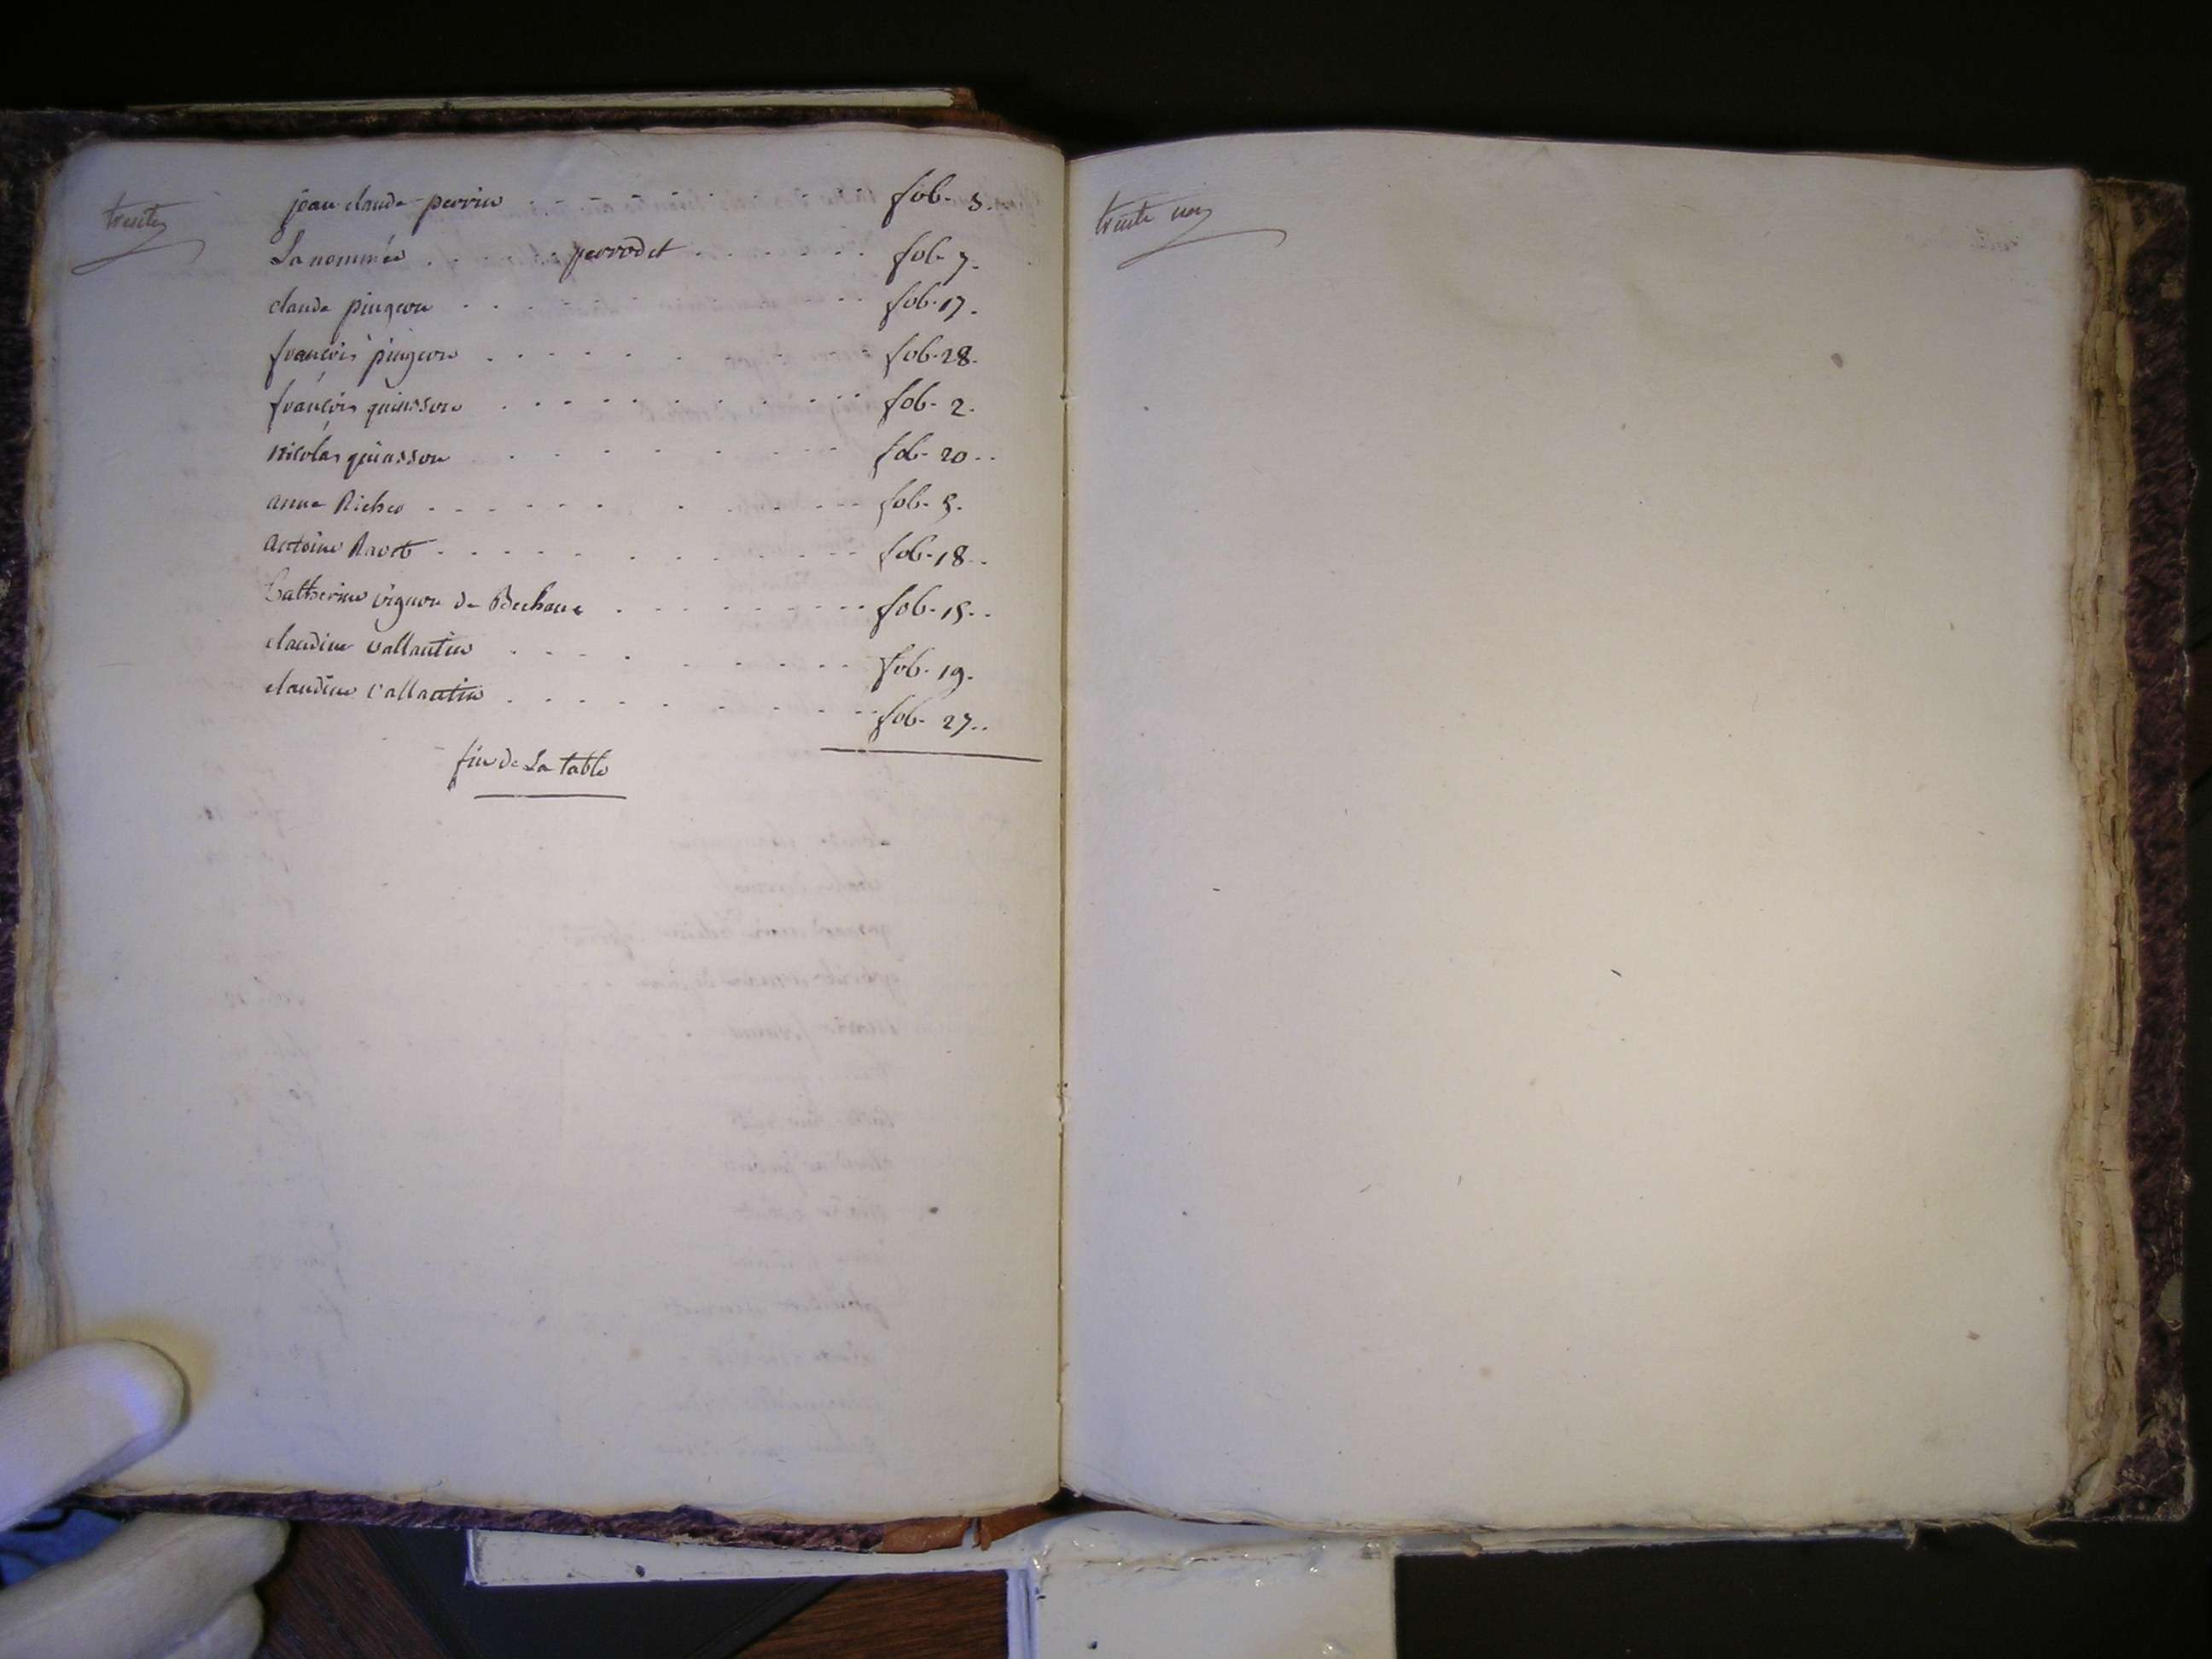 trente
jean claude perrin . . . . . . . . . fol. 5.
La nommée . . . . . perrodet . . . . . . . fol. 7.
claude pingeon . . . . . . . . . . fol. 17.
françois pingeon . . . . . . . . . fol. 28.
françois guinsson . . . . . . . . . . fol. 2.
nicolas guinsson . . . . . . . . . fol. 20..
anne Richer . . . . . . . . . . . fol. 5.
antoine Ravet . . . . . . . . . . . fol. 18..
Catherine vignon de . . . . . . . . fol. 15..
claudine vallantin . . . . . . . . . . fol. 19.
claudine vallantin . . . . . . . . . fol. 27..
fin de La table
trente un